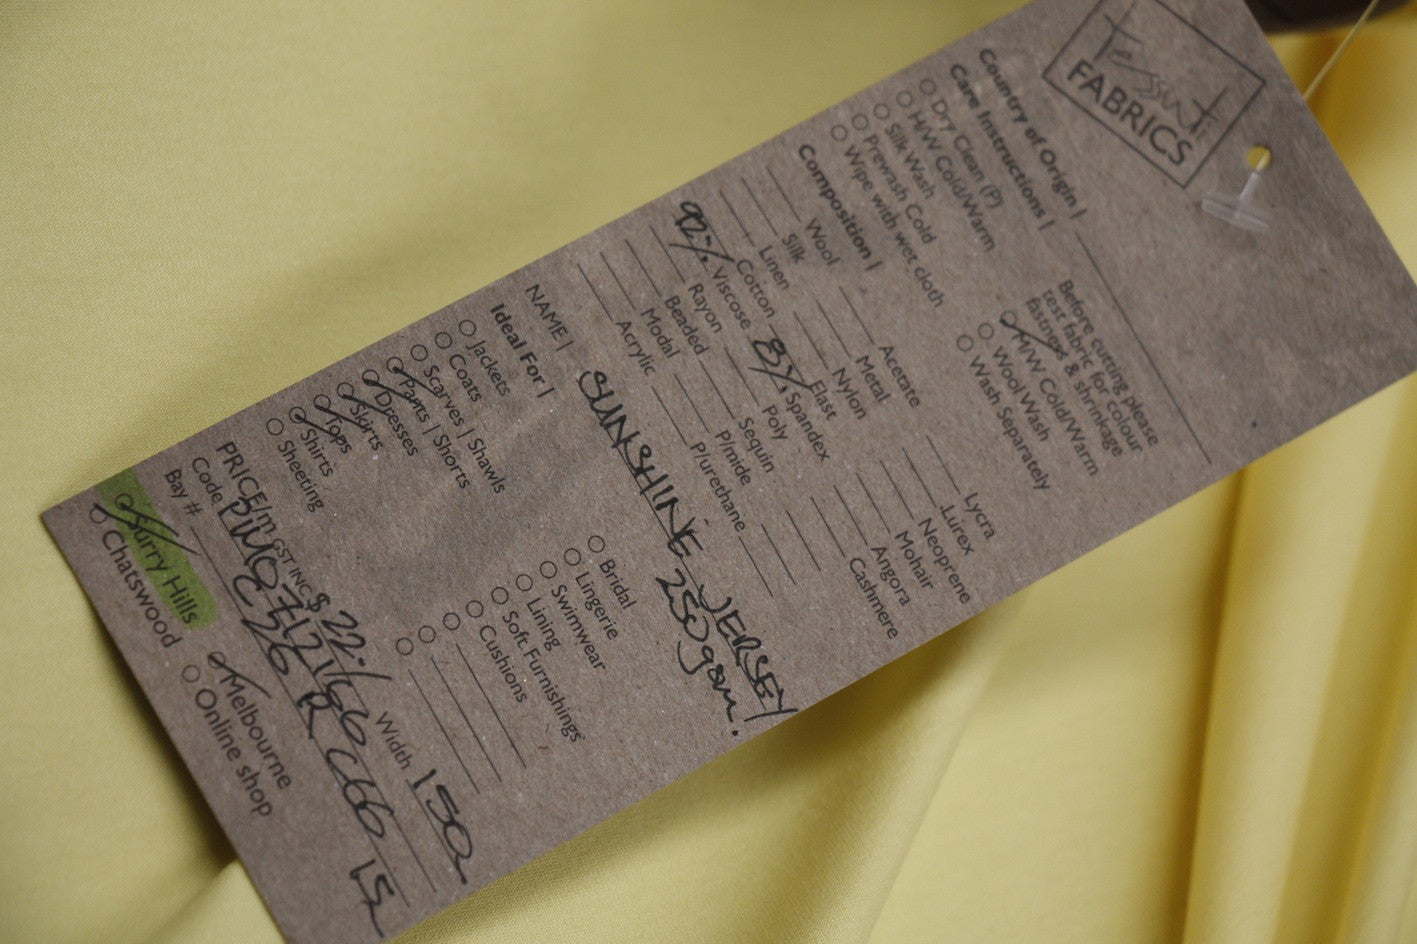 Tessuti
FABRICS
Country of Origin |
Care Instructions |
Dry Clean (P)
H/W Cold/Warm
Silk Wash
Prewash Cold
Wipe with wet cloth
Before cutting please
test fabric for colour
fastness & shrinkage
H/W Cold/Warm
Wool Wash
Wash Separately
Composition |
Wool
Silk
Linen
Cotton
92% Viscose
Rayon
Beaded
Modal
Acrylic
Acetate
Metal
Nylon
Elast
8% Spandex
Poly
Sequin
P/mide
P/urethane
Lycra
Lurex
Neoprene
Mohair
Angora
Cashmere
NAME | SUNSHINE JERSEY
250gsm.
Ideal For |
Jackets
Coats
Scarves | Shawls
Pants | Shorts
Dresses
Skirts
Tops
Shirts
Sheeting
Bridal
Lingerie
Swimwear
Lining
Soft Furnishings
Cushions
PRICE/m GST INC $ Width 150
Code
Bay #
Surry Hills
Chatswood
Melbourne
Online shop